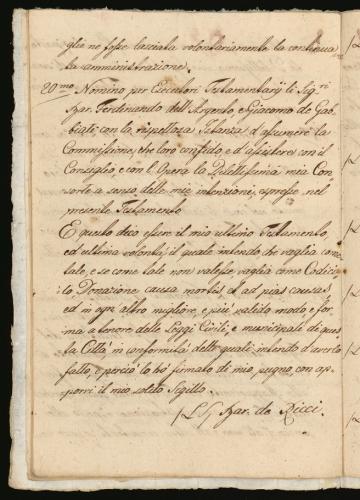 glie ne fosse lasciata volontariamente la continua
ta amministrazione.
20.mo Nomino per Esecutori Testamentarj li Sig.ri
Bar. Ferdinando dell'Argento, e Giacomo de Gab-
biati, con la rispettosa Istanza d'assumere la
Commissione, che loro confido, e d'assistere con il
Consiglio e con l'Opera la Dilettissima mia Con-
sorte a senso delle mie intenzioni, espresse nel
presente Testamento
E questo dico essere il mio ultimo Testamento,
ed ultima volontà, il quale intendo che vaglia come
tale, e se come tale non valesse vaglia come Codicil-
lo Donazione causa mortis, et ad pias causas
ed in ogni altro migliore, e più valido modo, e for-
ma a tenore delle Leggi Civili, e municipali di ques-
ta Città, in conformità delle quali intendo d'averlo
fatto, e perciò lo hò firmato di mio pugno, con ap-
porvi il mio solito Sigillo.
L.S. Bar. de Ricci.